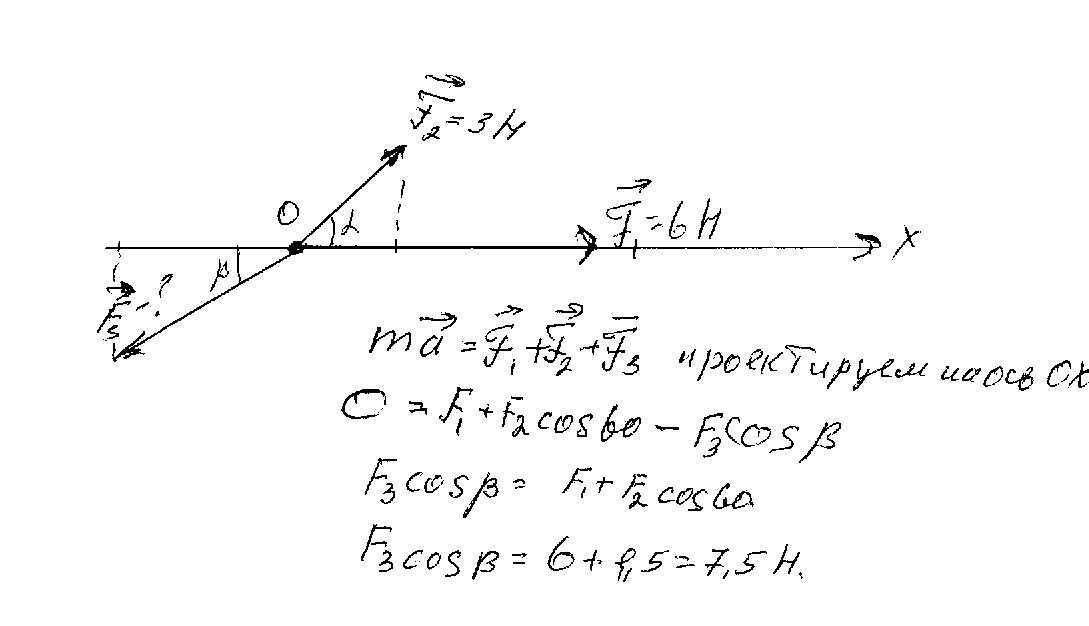 F₂ = 3 Н
O
α
F₁ = 6 Н
X
β
F₃ - ?
ma = F₁ + F₂ + F₃ проектируем на ось OX
O = F₁ + F₂ cos 60 - F₃ cos β
F₃ cos β = F₁ + F₂ cos 60
F₃ cos β = 6 + 1,5 = 7,5 Н.